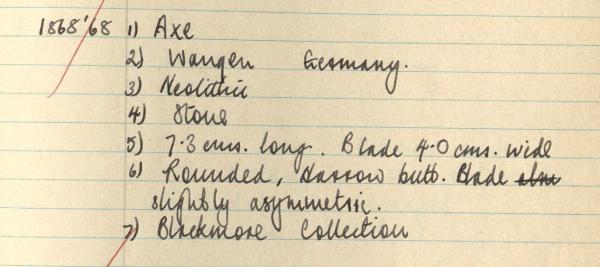 1868'68 1) Axe
2) Wangen Germany.
3) Neolithic
4) Stone
5) 7.3 cms. long. Blade 4.0 cms. wide
6) Rounded, narrow butt. Blade
slightly asymmetric.
7) Blackmore Collection